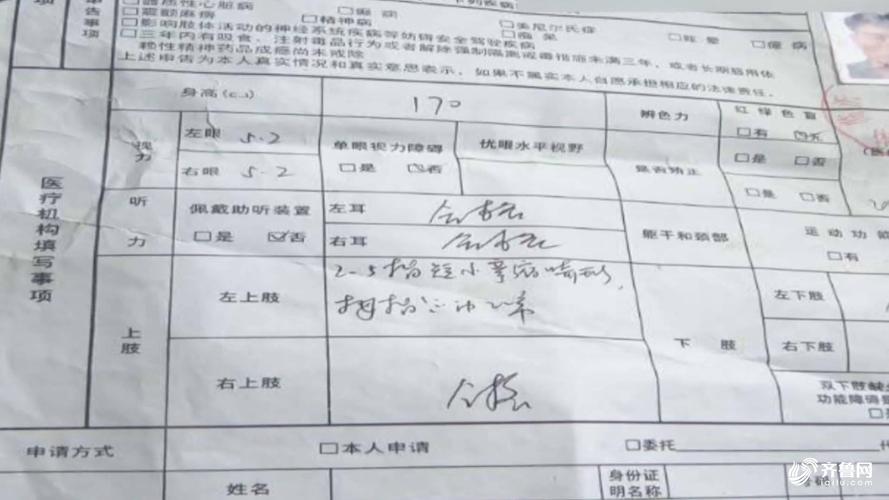 器质性心脏病
癫痫
震颤麻痹
精神病
美尼尔氏症
眩晕
癔病
痴呆
影响肢体活动的神经系统疾病等妨碍安全驾驶疾病
三年内有吸食、注射毒品行为或者解除强制隔离戒毒措施未满三年，或者长期服用依
赖性精神药品成瘾尚未戒除
上述申告为本人真实情况和真实意思表示，如果不属实本人自愿承担相应的法律责任。
申告事项
医疗机构填写事项
身高(cm)
170
辨色力
红绿色盲
□有 ☑无
视力
左眼 5.2
右眼 5.2
单眼视力障碍
□是 ☑否
优眼水平视野
是否矫正
□是 □否
□是 □否
听力
佩戴助听装置
□是 ☑否
左耳 合格
右耳 合格
躯干和颈部
运动功能
□有
上肢
左上肢
2-5指短小
拇指
右上肢
合格
下肢
左下肢
右下肢
双下肢缺
功能障碍
申请方式
□本人申请
□委托
代
姓名
身份证
明名称
齐鲁网
iqilu.com